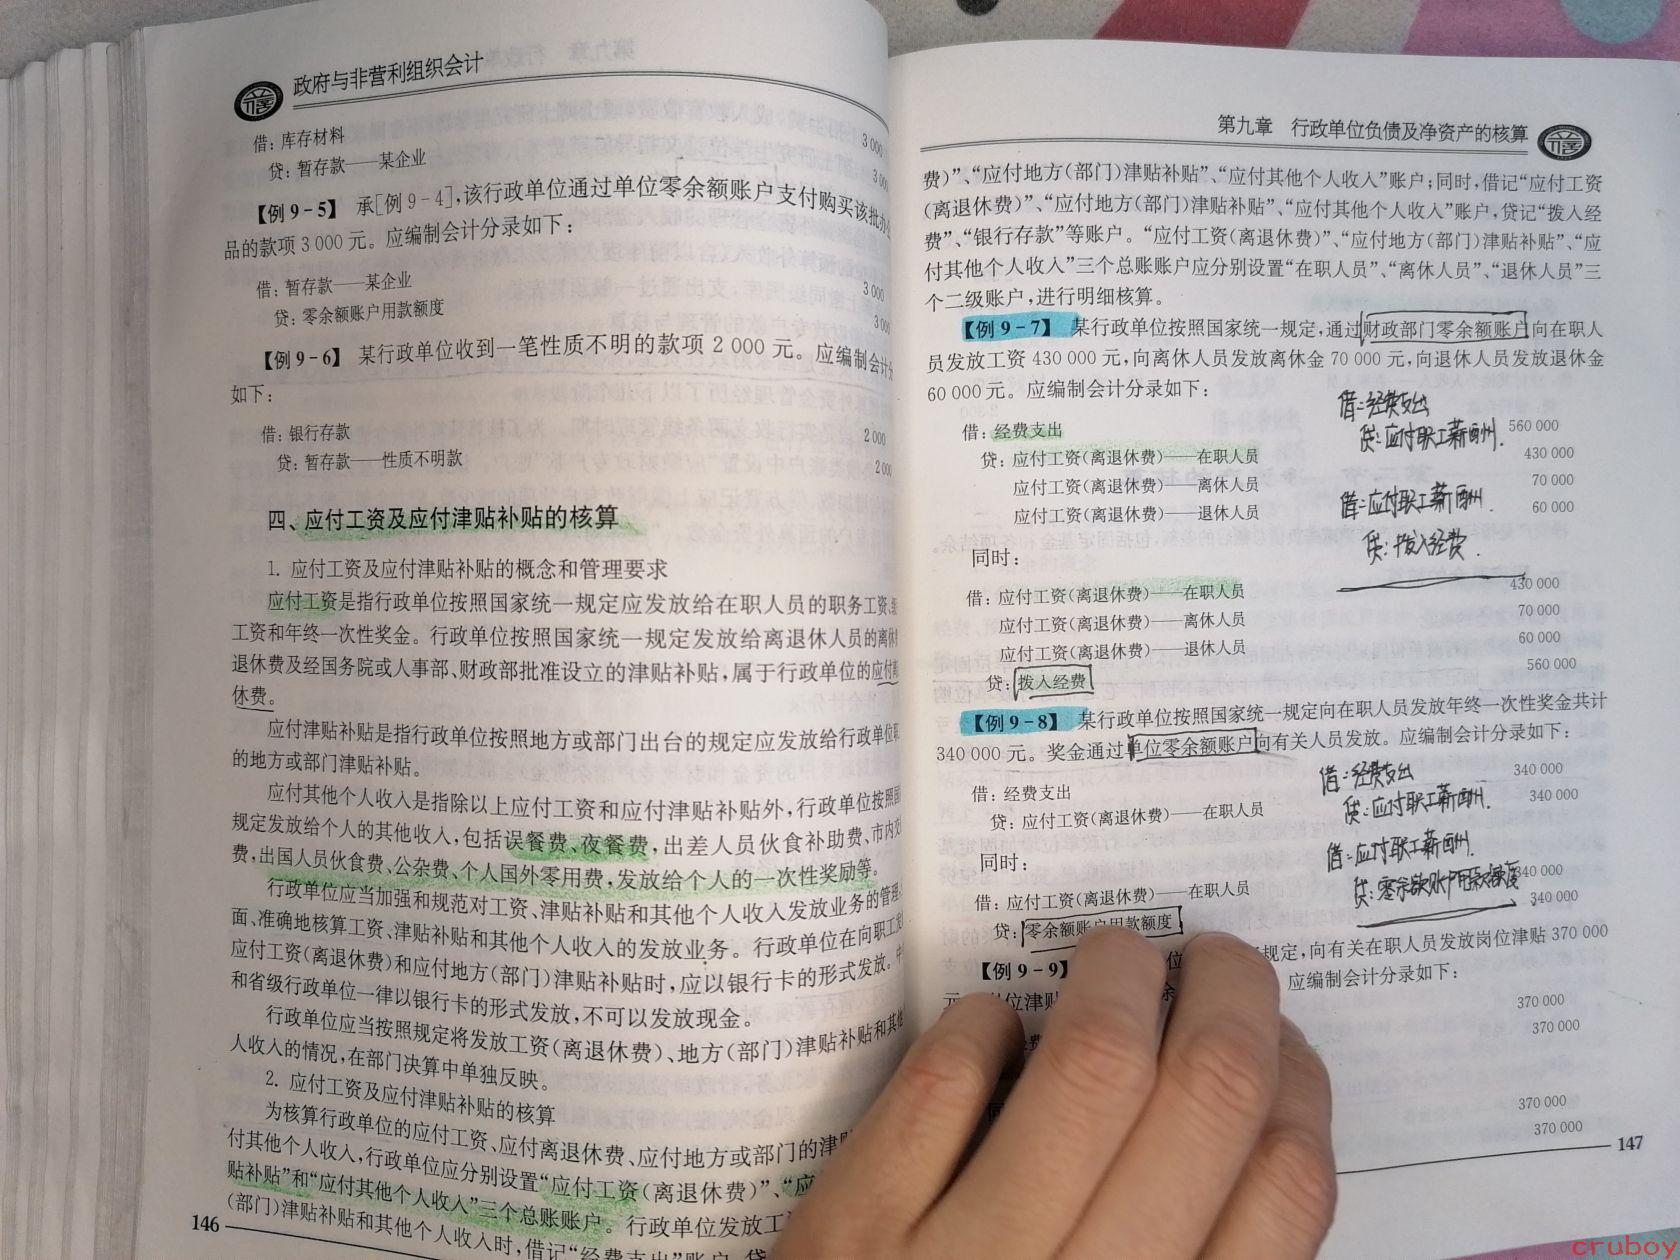 政府与非营利组织会计
借：库存材料 3 000
贷：暂存款——某企业 3 000
【例9-5】 承[例9-4]，该行政单位通过单位零余额账户支付购买该批办公
品的款项3 000元。应编制会计分录如下：
借：暂存款——某企业 3 000
贷：零余额账户用款额度 3 000
【例9-6】 某行政单位收到一笔性质不明的款项2 000元。应编制会计分
如下：
借：银行存款 2 000
贷：暂存款——性质不明款 2 000
四、应付工资及应付津贴补贴的核算
1. 应付工资及应付津贴补贴的概念和管理要求
应付工资是指行政单位按照国家统一规定应发放给在职人员的职务工资、
工资和年终一次性奖金。行政单位按照国家统一规定发放给离退休人员的离休
退休费及经国务院或人事部、财政部批准设立的津贴补贴，属于行政单位的应付离
休费。
应付津贴补贴是指行政单位按照地方或部门出台的规定应发放给行政单位职
的地方或部门津贴补贴。
应付其他个人收入是指除以上应付工资和应付津贴补贴外，行政单位按照国
规定发放给个人的其他收入，包括误餐费、夜餐费，出差人员伙食补助费、市内交
费，出国人员伙食费、公杂费、个人国外零用费，发放给个人的一次性奖励等。
行政单位应当加强和规范对工资、津贴补贴和其他个人收入发放业务的管理，
面、准确地核算工资、津贴补贴和其他个人收入的发放业务。行政单位在向职工发
应付工资(离退休费)和应付地方(部门)津贴补贴时，应以银行卡的形式发放。中
和省级行政单位一律以银行卡的形式发放，不可以发放现金。
行政单位应当按照规定将发放工资(离退休费)、地方(部门)津贴补贴和其他
人收入的情况，在部门决算中单独反映。
2. 应付工资及应付津贴补贴的核算
为核算行政单位的应付工资、应付离退休费、应付地方或部门的津
付其他个人收入，行政单位应分别设置“应付工资(离退休费)”、“应
贴补贴”和“应付其他个人收入”三个总账账户。行政单位发放工
(部门)津贴补贴和其他个人收入时，借记“经费支出”账户，贷
146
第九章 行政单位负债及净资产的核算
费)”、“应付地方(部门)津贴补贴”、“应付其他个人收入”账户；同时，借记“应付工资
(离退休费)”、“应付地方(部门)津贴补贴”、“应付其他个人收入”账户，贷记“拨入经
费”、“银行存款”等账户。“应付工资(离退休费)”、“应付地方(部门)津贴补贴”、“应
付其他个人收入”三个总账账户应分别设置“在职人员”、“离休人员”、“退休人员”三
个二级账户，进行明细核算。
【例9-7】 某行政单位按照国家统一规定，通过财政部门零余额账户向在职人
员发放工资430 000元，向离休人员发放离休金70 000元，向退休人员发放退休金
60 000元。应编制会计分录如下：
借：经费支出
贷：应付职工薪酬.
借：应付职工薪酬.
贷：拨入经费.
借：经费支出 560 000
贷：应付工资(离退休费)——在职人员 430 000
应付工资(离退休费)——离休人员 70 000
应付工资(离退休费)——退休人员 60 000
同时：
借：应付工资(离退休费)——在职人员 430 000
应付工资(离退休费)——离休人员 70 000
应付工资(离退休费)——退休人员 60 000
贷：拨入经费 560 000
【例9-8】 某行政单位按照国家统一规定向在职人员发放年终一次性奖金共计
340 000元。奖金通过单位零余额账户向有关人员发放。应编制会计分录如下：
借：经费支出
贷：应付职工薪酬.
借：应付职工薪酬.
贷：零余额账户用款额度
借：经费支出 340 000
贷：应付工资(离退休费)——在职人员 340 000
同时：
借：应付工资(离退休费)——在职人员 340 000
贷：零余额账户用款额度 340 000
【例9-9】 规定，向有关在职人员发放岗位津贴370 000
元 单位津贴 应编制会计分录如下：
370 000
370 000
同
370 000
370 000
147
cruboy